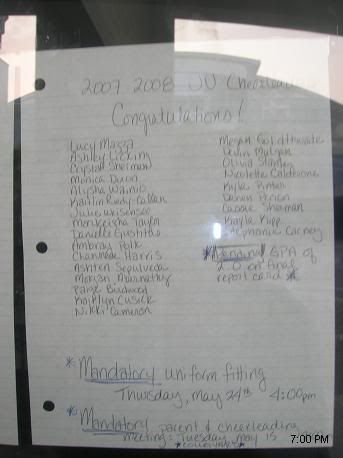 2007-2008 JV Cheerleading
Congratulations!
Lucy Mazza
Ashley Licking
Crystal Sherman
Monica Dixon
Alysha Wainio
Kaitlin Rudy-Callan
Julie
Monkeigha Taylor
Danielle
Ambray Polk
Channade Harris
Ashten Sepulveda
Morgan Abernathy
Paige
Kaitlyn Cusick
Nikki Cameron
Megan Goldthwaite
Mulgan
Olivia Stanley
Nicolette Calderone
Kyle
Cassie Sherman
Kayla Kipp
Stephanie Carney
*Pending GPA of
2.0 on final
report card *
*Mandatory uniform fitting
Thursday, May 24th 4:00pm
*Mandatory parent & cheerleading
meeting: Tuesday May 15
7:00 PM